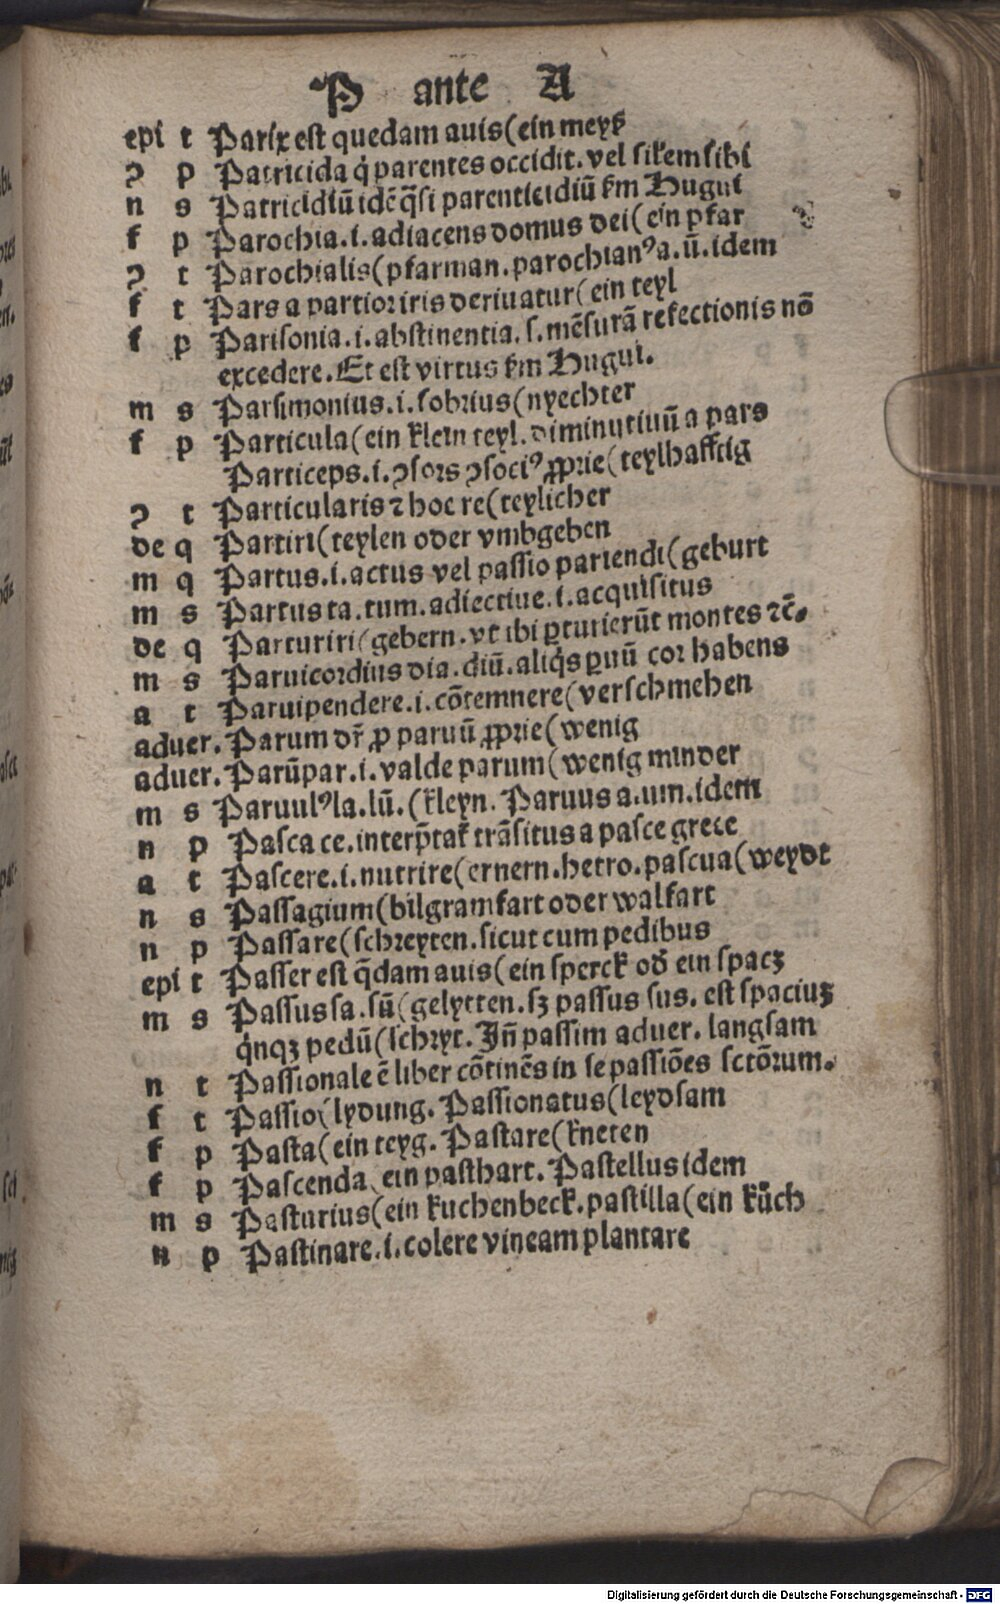 P ante A
epi t Parix est quedam auis(ein meyß
ꝯ p Patricida q̇ parentes occidit. vel silēm sibi
n s Patricidiū idē q̄si parenticidiū km̄ Hugui
f p Parochia.i.adiacens domus dei(ein pfar
ꝯ t Parochialis(pfarman.parochianꝰa.ū.idem
f t Pars a partior iris deriuatur(ein teyl
f p Parisonia.i.abstinentia.s.mēsurā refectionis nō
excedere.Et est virtus km̄ Hugui.
m s Parsimonius.i.sobrius(nyechter
f p Particula(ein klein teyl.diminutiuū a pars
Particeps.i.ꝯsors ꝯsociꝰ ꝓprie(teylhafftig
ꝯ t Particularis ⁊ hoc re(teylicher
de q Partiri(teylen oder vmbgeben
m q Partus.i.actus vel passio pariendi(geburt
m s Partus ta.tum.adiectiue.i.acquisitus
de q Parturiri(gebern.vt ibi ꝑturierūt montes ⁊c̄.
m s Paruicordius dia.diū.aliq̇s ꝑuū cor habens
a t Paruipendere.i.cōtemnere(verschmehen
aduer. Parum dr̄ ꝓ paruū ꝓprie(wenig
aduer. Parūpar.i.valde parum(wenig minder
m s Paruulꝰla.lū.(kleyn. Paruus a.um.idem
n p Pasca ce.interp̄tat̄ trāsitus a pasce grece
a t Pascere.i.nutrire(ernern.hetro.pascua(weydt
n s Passagium(bilgramfart oder walfart
n p Passare(schreyten.sicut cum pedibus
epi t Passer est q̄dam auis(ein sperck od̄ ein spacz
m s Passus sa.sū(gelytten.sꝫ passus sus. est spaciuꝫ
q̇nqꝫ pedū(schryt. Jn̄ passim aduer. langsam
n t Passionale ē liber cōtinēs in se passiōes sctōrum.
f t Passio(lydung. Passionatus(leydsam
f p Pasta(ein teyg. Pastare(kneten
f p Pascenda(ein pasthart. Pastellus idem
m s Pasturius(ein kuchenbeck.pastilla(ein kůch
n p Pastinare.i.colere vineam plantare
Digitalisierung gefördert durch die Deutsche Forschungsgemeinschaft - DFG